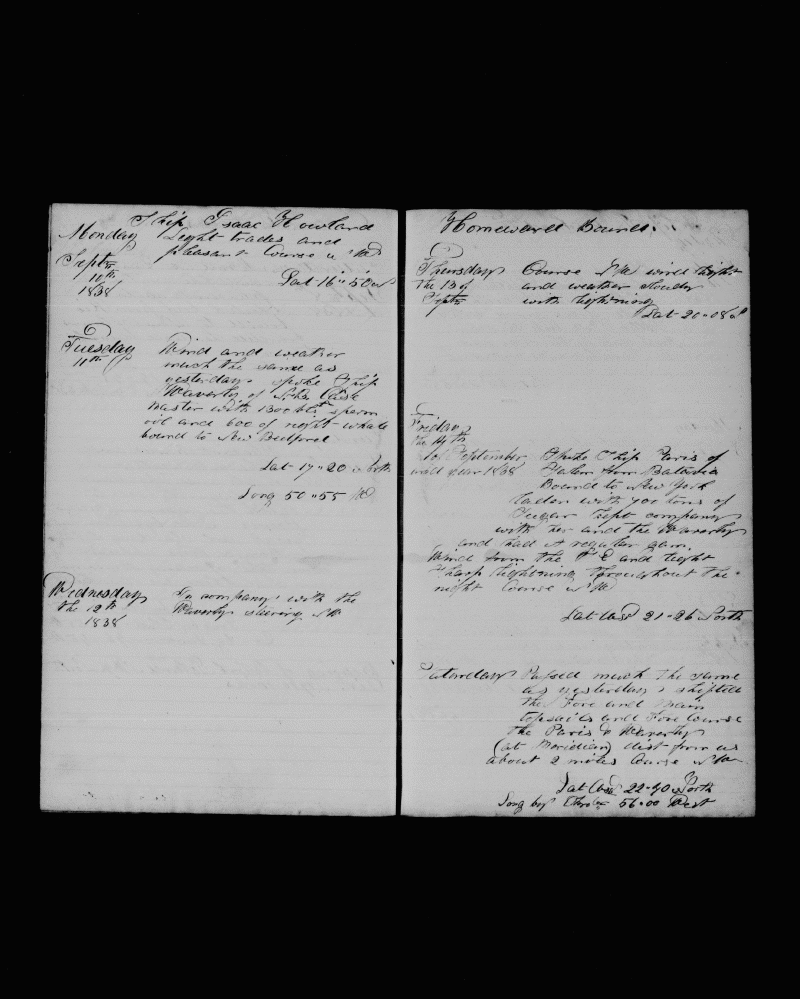 Ship Isaac Howland
Monday Light trades and
pleasant Course N W
Septr
10th
1838
Lat 16"50 N
Tuesday
11th
Wind and weather
much the same as
yesterday. spoke Ship
Waverly of
master with 1300 bbls sperm
oil and 600 of right whale
bound to New Bedford
Lat 17"20 North
Long 50"55 W
Wednesday
the 12th
1838
In company with the
Waverly steering N W
Homeward Bound.
Thursday
the 13th
Septr
Course N W wind light
and weather cloudy
with lightning
Lat 20"08 N
Friday
the 14th
of September
year 1838
Spoke Ship Paris of
Salem from Batavia
Bound to New York
laden with 700 tons of
Sugar Kept company
with her and the Waverly
and had A regular gam.
Wind from the and light
Sharp lightning throughout the
night Course N W
Lat Obsd 21-26 North
Saturday
Passed much the same
as yesterday, shifted
the Fore and main
topsails and Fore Course
the Paris & Waverly
(at Meridian) dist from us
about 2 miles Course N W
Lat Obsd 22-40 North
Long by Chro 56-00 West